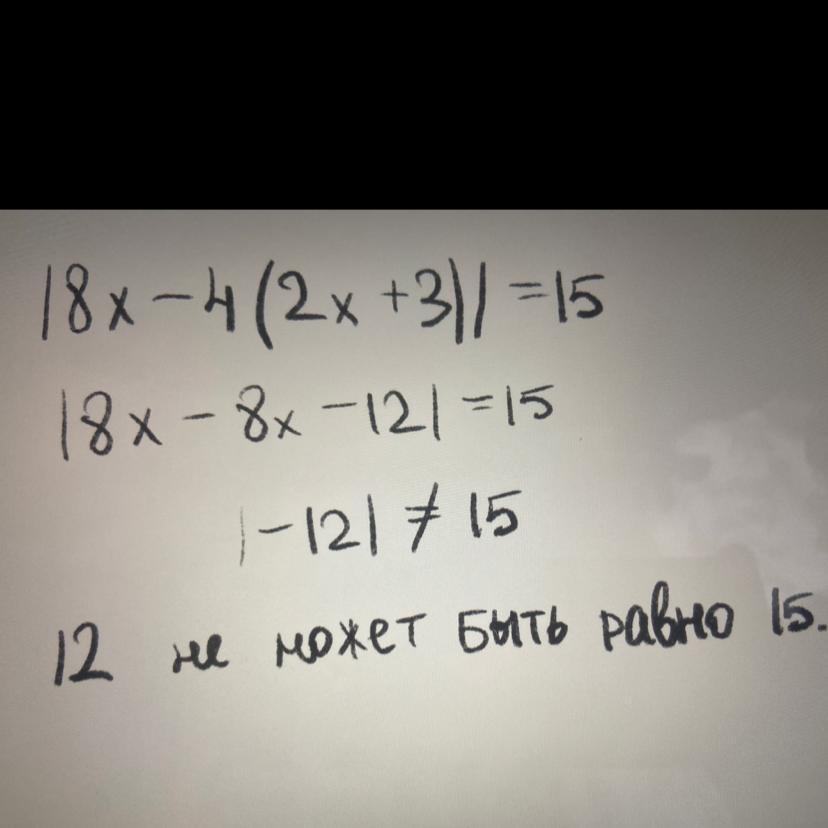 |8x - 4(2x + 3)| = 15
|8x - 8x - 12| = 15
|-12| ≠ 15
12 не может быть равно 15.